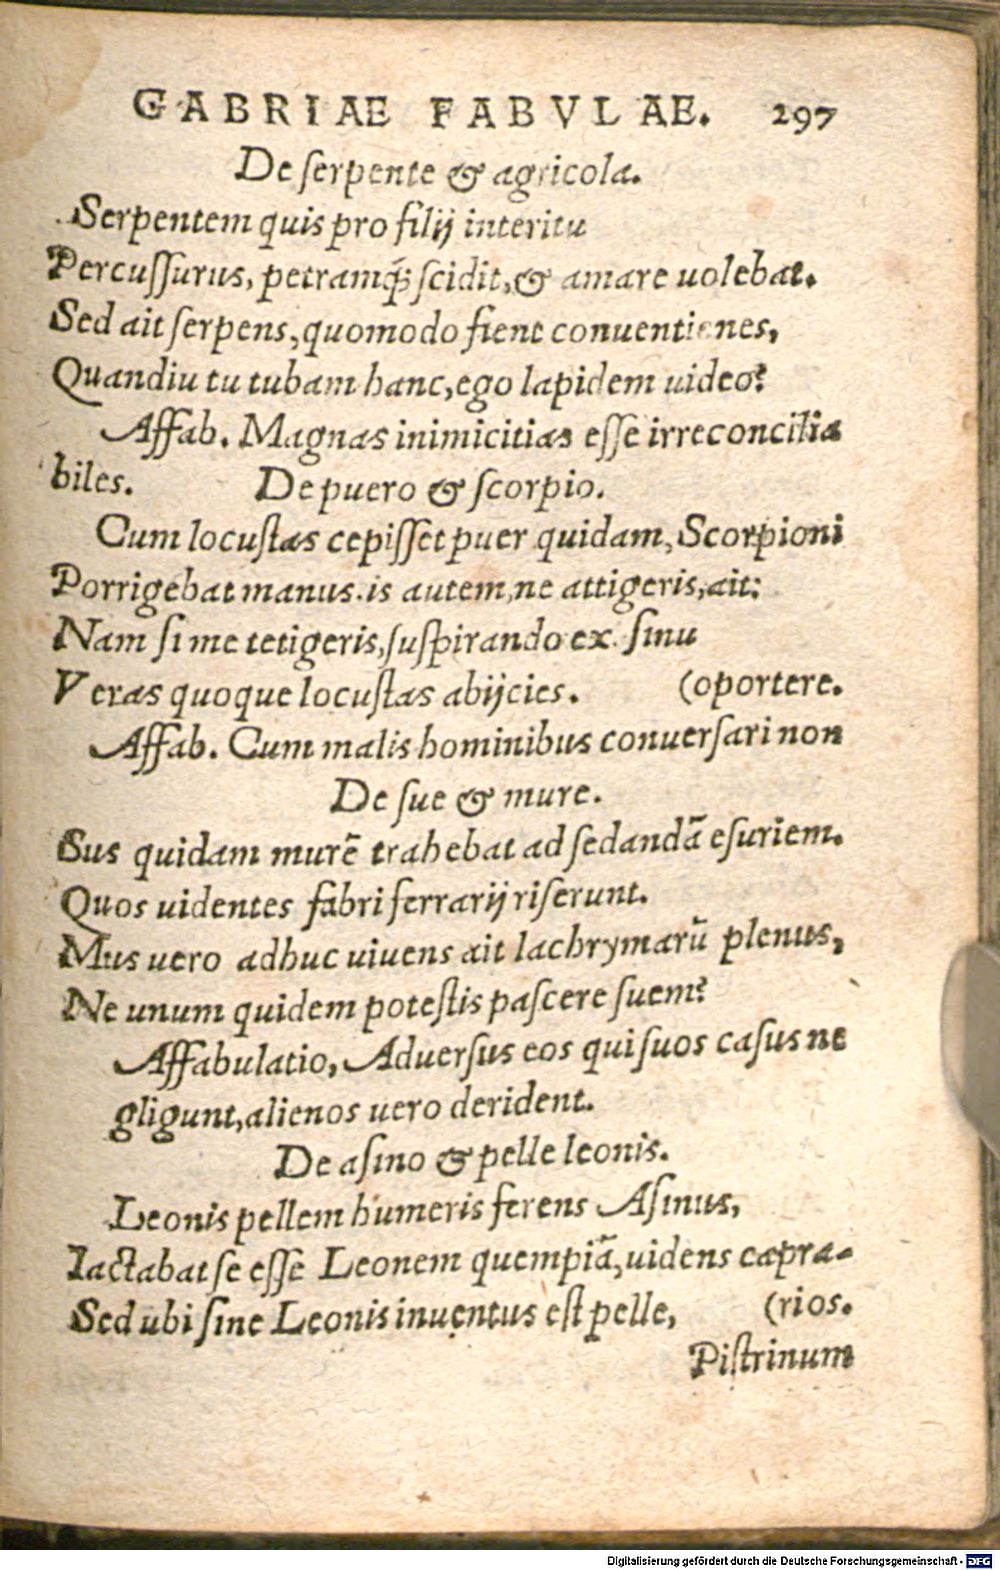 GABRIAE FABVLAE. 297
De ſerpente & agricola.
Serpentem quis pro filij interitu
Percuſſurus, petramq́; ſcidit, & amare uolebat.
Sed ait ſerpens, quomodo fient conuentiones,
Quandiu tu tubam hanc, ego lapidem uideo?
Affab. Magnas inimicitias eſſe irreconcilia
biles. De puero & ſcorpio.
Cum locuſtas cepiſſet puer quidam, Scorpioni
Porrigebat manus. is autem, ne attigeris, ait:
Nam ſi me tetigeris, ſuſpirando ex ſinu
Veras quoque locuſtas abijcies. (oportere.
Affab. Cum malis hominibus conuerſari non
De ſue & mure.
Sus quidam murē trahebat ad ſedandā eſuriem.
Quos uidentes fabri ferrarij riſerunt.
Mus uero adhuc uiuens ait lachrymarū plenus,
Ne unum quidem poteſtis paſcere ſuem?
Affabulatio, Aduerſus eos qui ſuos caſus ne
gligunt, alienos uero derident.
De aſino & pelle leonis.
Leonis pellem humeris ferens Aſinus,
Iactabat ſe eſſe Leonem quempiā, uidens capra-
Sed ubi ſine Leonis inuentus eſt pelle, (rios.
Piſtrinum
Digitalisierung gefördert durch die Deutsche Forschungsgemeinschaft - DFG